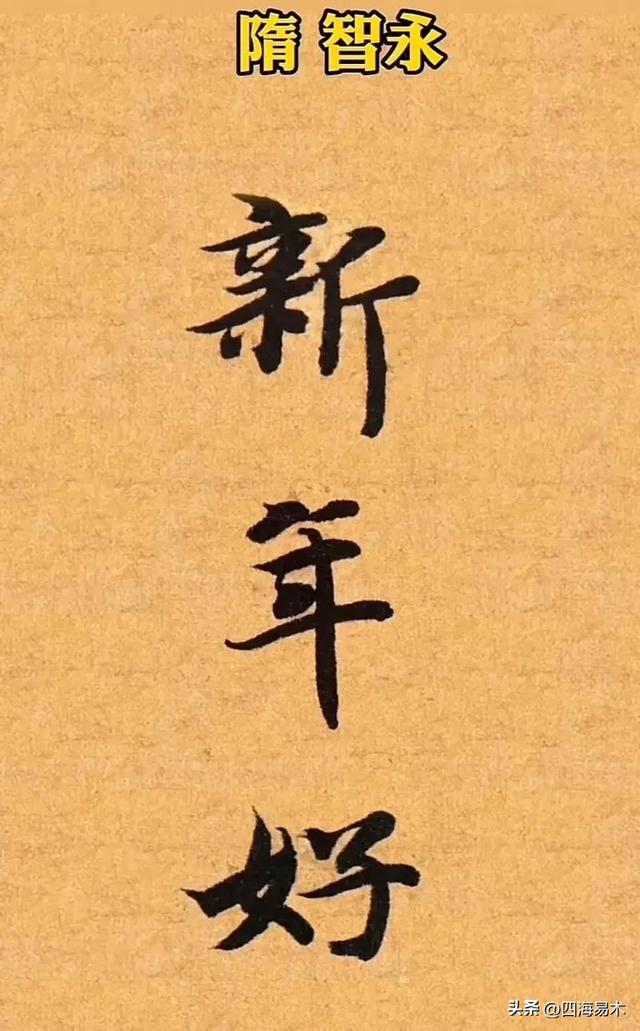 隋 智永
新
年
好
头条 @四海易木